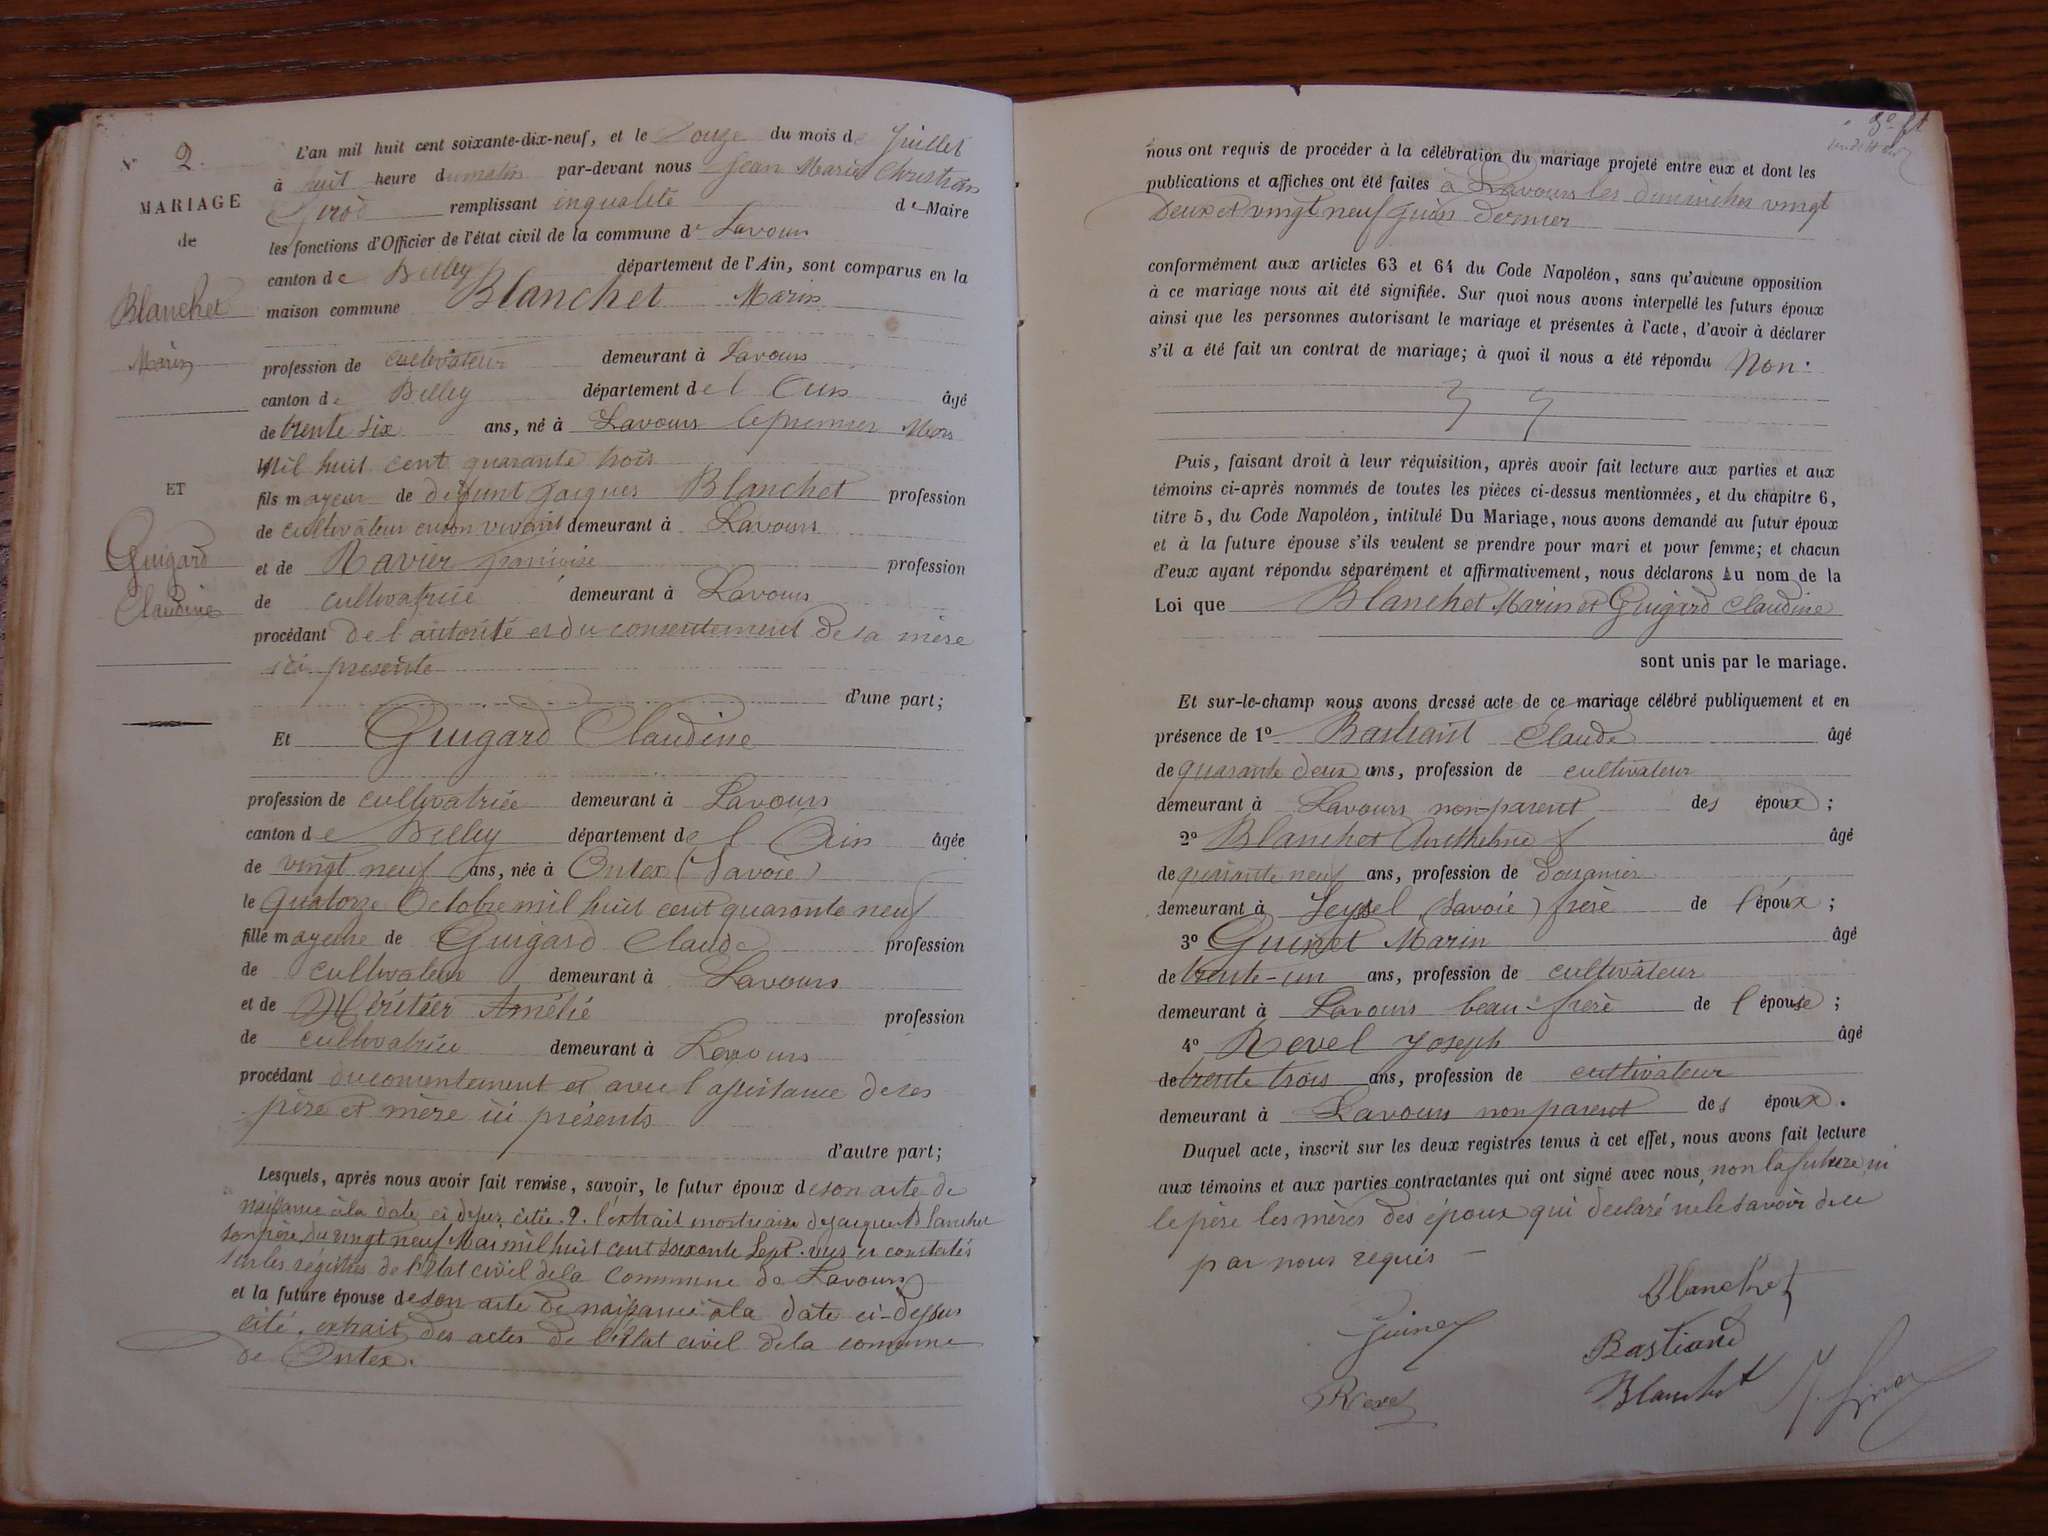 N° 2.
MARIAGE
de
Blanchet
Marin
ET
Guigard
Claudine
L'an mil huit cent soixante-dix-neuf, et le Douze du mois de Juillet
à huit heure du matin par-devant nous Jean Marie Christian
Girod remplissant en qualité de Maire
les fonctions d'Officier de l'état civil de la commune de Lavours
canton de Belley département de l'Ain, sont comparus en la
maison commune Blanchet Marin
profession de cultivateur demeurant à Lavours
canton de Belley département de l'Ain âgé
de trente six ans, né à Lavours le premier Mars
Mil huit cent quarante trois
fils mayeur de defunt Jacques Blanchet profession
de cultivateur en son vivant demeurant à Lavours
et de Ravier françoise profession
de cultivatrice demeurant à Lavours
procédant de l'autorité et du consentement de sa mère
ici présente
d'une part;
Et Guigard Claudine
profession de cultivatrice demeurant à Lavours
canton de Belley département de l'Ain âgée
de vingt neuf ans, née à Ontex (Savoie)
le quatorze Octobre mil huit cent quarante neuf
fille mayeure de Guigard Claude profession
de cultivateur demeurant à Lavours
et de Méritier Amélie profession
de cultivatrice demeurant à Lavours
procédant du consentement et avec l'assistance de ses
père et mère ici présents
d'autre part;
Lesquels, après nous avoir fait remise, savoir, le futur époux de son acte de
naissance à la date ci dessus citée. 2. l'extrait mortuaire de Jacques Blanchet
son père du vingt neuf Mai mil huit cent soixante sept. vus et constatés
sur les régistres de l'Etat civil de la Commune de Lavours
et la future épouse de son acte de naissance à la date ci-dessus
cité, extrait des actes de l'état civil de la commune
de Ontex.
nous ont requis de procéder à la célébration du mariage projeté entre eux et dont les
publications et affiches ont été faites à Lavours les dimanches vingt
Deux et vingt neuf Juin dernier
conformément aux articles 63 et 64 du Code Napoléon, sans qu'aucune opposition
à ce mariage nous ait été signifiée. Sur quoi nous avons interpellé les futurs époux
ainsi que les personnes autorisant le mariage et présentes à l'acte, d'avoir à déclarer
s'il a été fait un contrat de mariage; à quoi il nous a été répondu Non.
Puis, faisant droit à leur réquisition, après avoir fait lecture aux parties et aux
témoins ci-après nommés de toutes les pièces ci-dessus mentionnées, et du chapitre 6,
titre 5, du Code Napoléon, intitulé Du Mariage, nous avons demandé au futur époux
et à la future épouse s'ils veulent se prendre pour mari et pour femme; et chacun
d'eux ayant répondu séparément et affirmativement, nous déclarons Au nom de la
Loi que Blanchet Marin et Guigard Claudine
sont unis par le mariage.
Et sur-le-champ nous avons dressé acte de ce mariage célébré publiquement et en
présence de 1° Bastiant Claude âgé
de quarante deux ans, profession de cultivateur
demeurant à Lavours non-parent des époux;
2° Blanchet Anthelme âgé
de quarante neuf ans, profession de Douanier
demeurant à Seyssel (Savoie) frère de l'époux;
3° Guinet Marin âgé
de trente-un ans, profession de cultivateur
demeurant à Lavours beau-frère de l'épouse;
4° Revel Joseph âgé
de trente trois ans, profession de cultivateur
demeurant à Lavours non parent des époux.
Duquel acte, inscrit sur les deux registres tenus à cet effet, nous avons fait lecture
aux témoins et aux parties contractantes qui ont signé avec nous, non la future, ni
le père les mères des époux qui déclaré ne le savoir de ce
par nous requis
Blanchet
Guinet
Bastiand
Revel
Blanchet